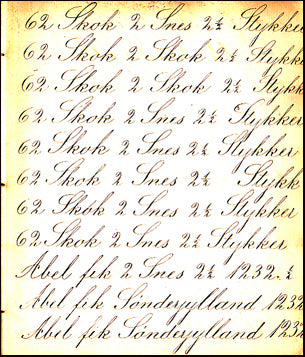 62 Skok 2 Snes 2½ Stykker
62 Skok 2 Skok 2½ Stykker
62 Skok 2 Skok 2½ Stykk
62 Skok 2 Snes 2½ Stykker
62 Skok 2 Snes 2½ Stykker
62 Skok 2 Snes 2½ Stykk
62 Skok 2 Snes 2½ Stykker
62 Skok 2 Snes 2½ Stykker
Abel fik 2 Snes 2½ 1232.
Abil fik Sönderjylland 1232
Abil fik Sönderjylland 1232